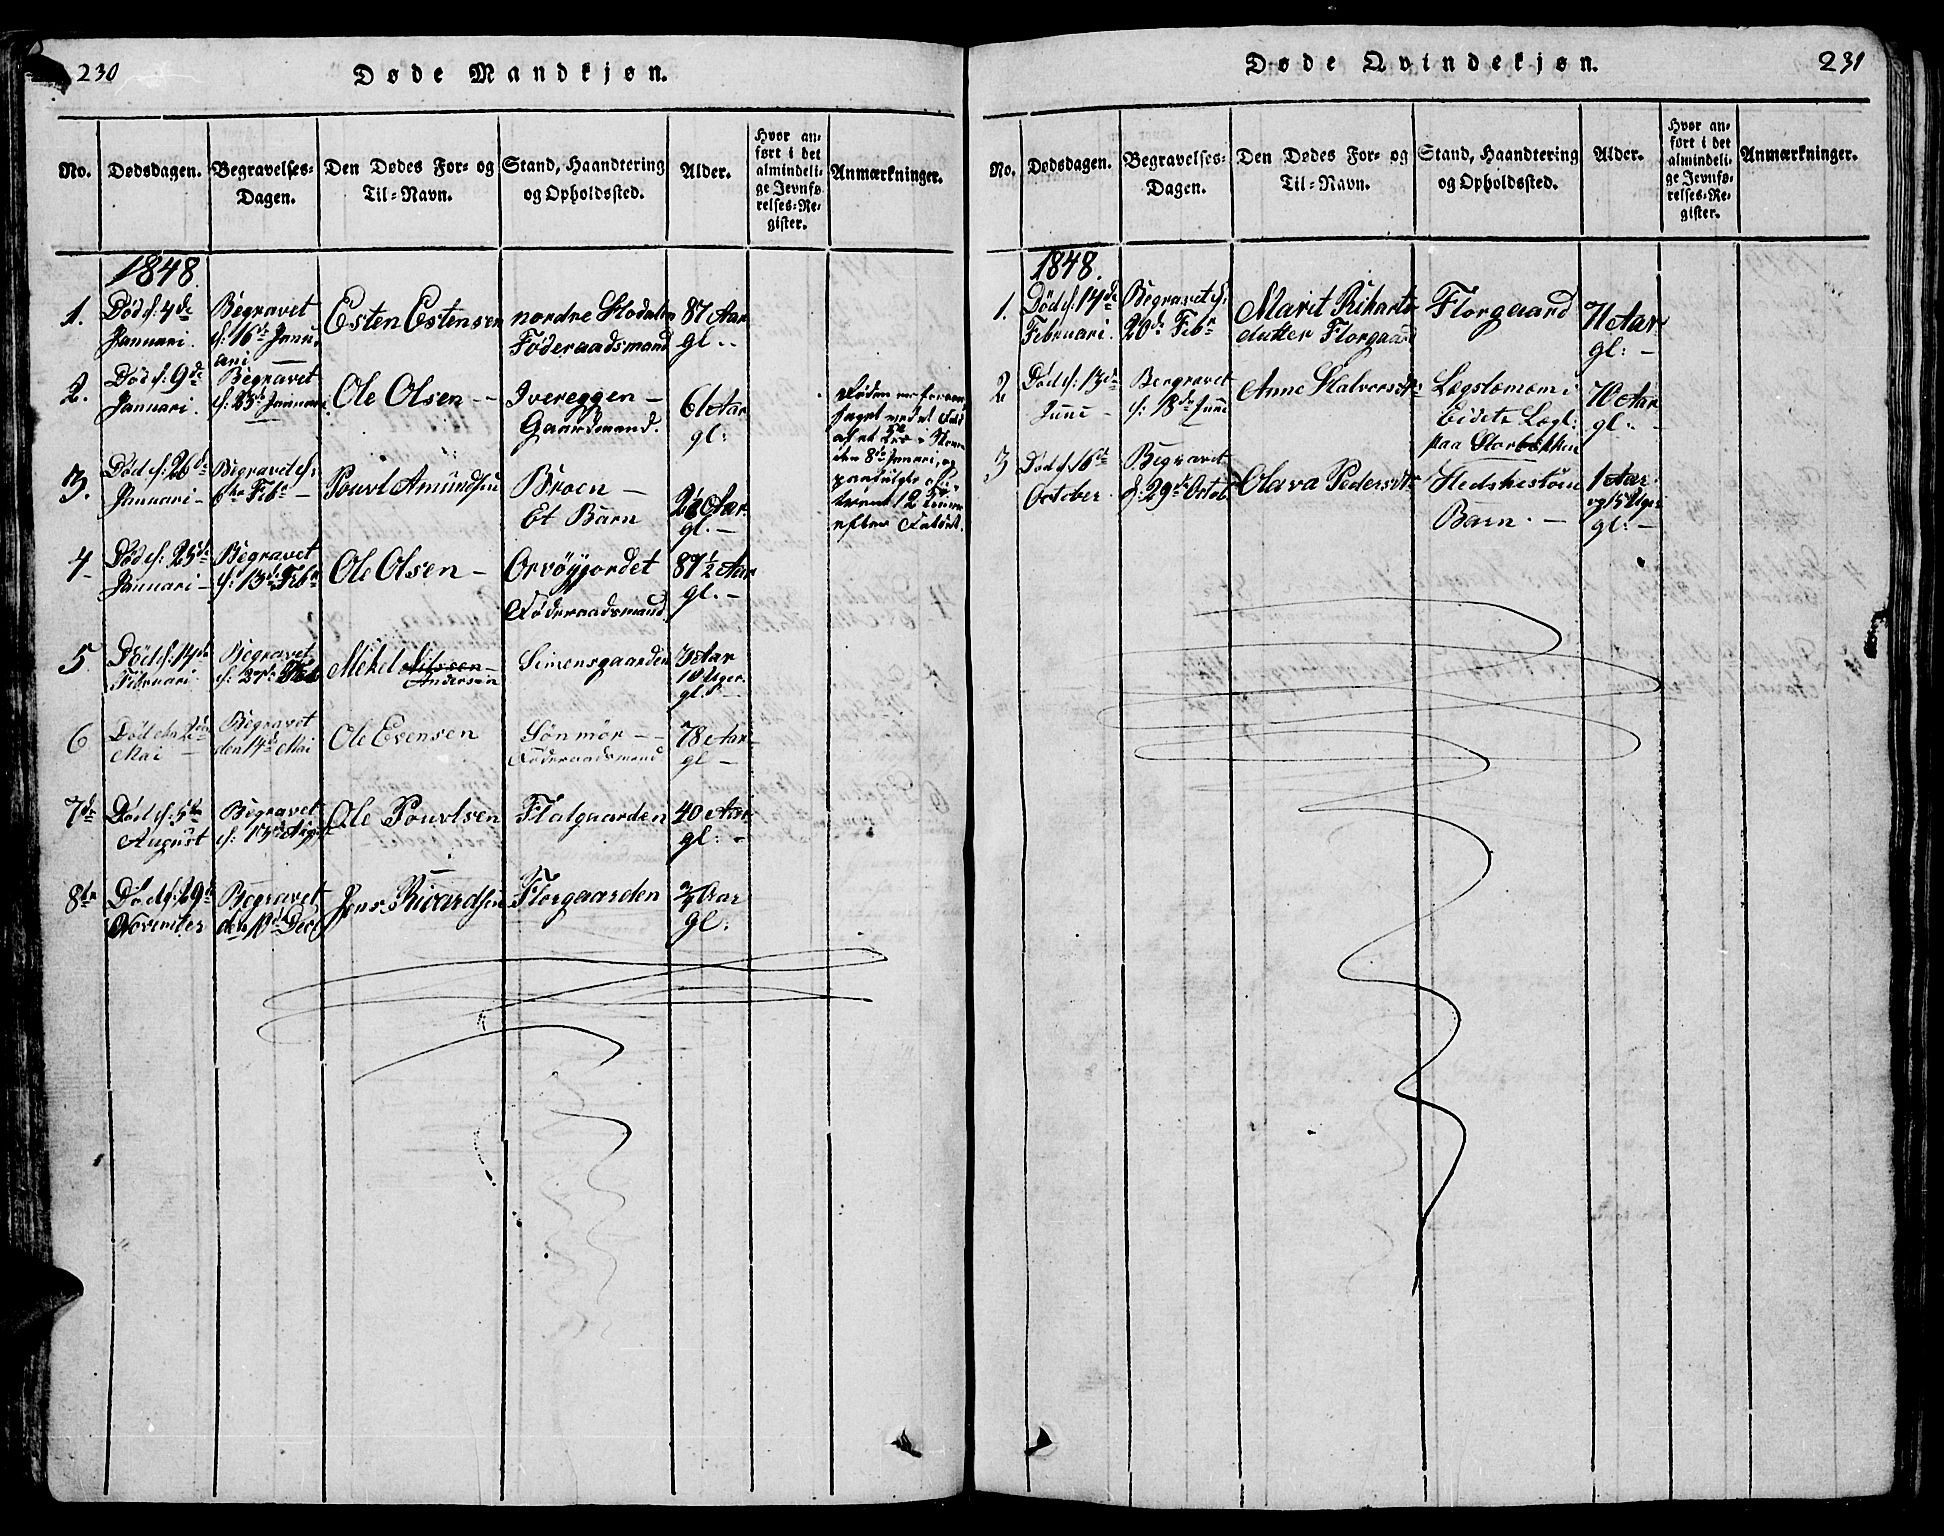 230
Døde Mandkjøn.
No.
Dødsdagen.
Begravelses-
Dagen.
Den Dødes For- og
Til-Navn.
Stand, Haandtering
og Opholdssted.
Alder.
Hvor an-
ført i det
almindeli-
ge Jevnfø-
relses-Re-
gister.
Anmærkninger.
1848.
1.
Død d: 4de
Januari.
Begravet
d: 16de Janu-
ari —
Esten Estensen
nordre
Føderaadsmand
87 Aar
gl..
2.
Død d: 9de
Januari.
Begravet
d: 23de Januari
Ole Olsen —
Ivereggen —
Gaardmand.
61 Aar
gl:
Døden var foraar
saget ved et Fald
af et
den 8de Januari, og
paafulgte
12 Timer
efter Faldet.
3.
Død d: 20de
Januari —
Begravet d:
6te Febr —
Pouvl Amundsen
Broen —
Et Barn
Aar
gl. —
4
Død d: 25de
Januari —
Begravet
d: 13de Febr
Ole Olsen —
Orvöyjordet
Føderaadsmand
87 1/2 Aar
gl. —
5
Død d: 14de
Februari.
Begravet
d: 27de Feb
Mekel Nilssen
Andersen
Simensgaarden
Aar
Uger.
gl: —
6
Død den
Mai —
Begravet
den 14de Mai
Ole Evensen
Sønmör —
Føderaadsmand
78 Aar
gl —
7de
Død d: 5te
August
Begravet
d: 13de Aug
Ole Pouvlsen
Flatgaarden
40 Aar
gl: —
8de
Død d: 29de
November
Begravet
den 10de Decb
Jens Ricardsen
Florgaarden
Aar
gl:
231
Døde Qvindekjøn.
No.
Dødsdagen.
Begravelses-
Dagen.
Den Dødes For- og
Til-Navn.
Stand, Haandtering
og Opholdssted.
Alder.
Hvor an-
ført i det
almindeli-
ge Jevnfø-
relses-Re-
gister.
Anmærkninger.
1848.
1.
Død d: 14de
Februari.
Begravet d:
20de Febr
Marit Rikarts
datter Florgaard
Florgaard
71 Aar
gl: —
2
Død d: 13de
Juni —
Bergravet
d: 18de Juni
Anne Halversdtr
Lægslemom i
Eidets Lægd:
paa Storbekken
70 Aar
gl.. —
3
Død d: 16de
October.
Begravet
d: 29de Octob
Olava Pedersdtr
Barn. —
1 Aar
og 15 Uger
gl: —